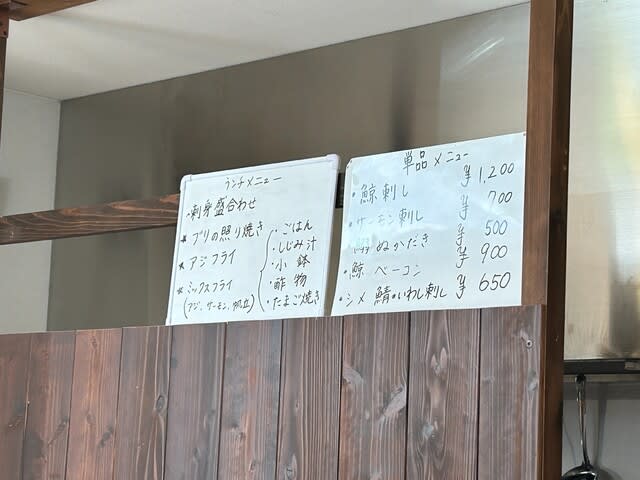 ランチメニュー
・刺身盛合わせ
* ブリの照り焼き
* アジフライ
* ミックスフライ
(アジ、サーモン、帆立)
・ごはん
・しじみ汁
・小鉢
・酢物
・たまご焼き
単品メニュー
・鯨刺し ¥1,200
・サーモン刺し ¥700
ぬかだき ¥500
・鯨ベーコン ¥900
・シメ鯖orいわし刺し ¥650